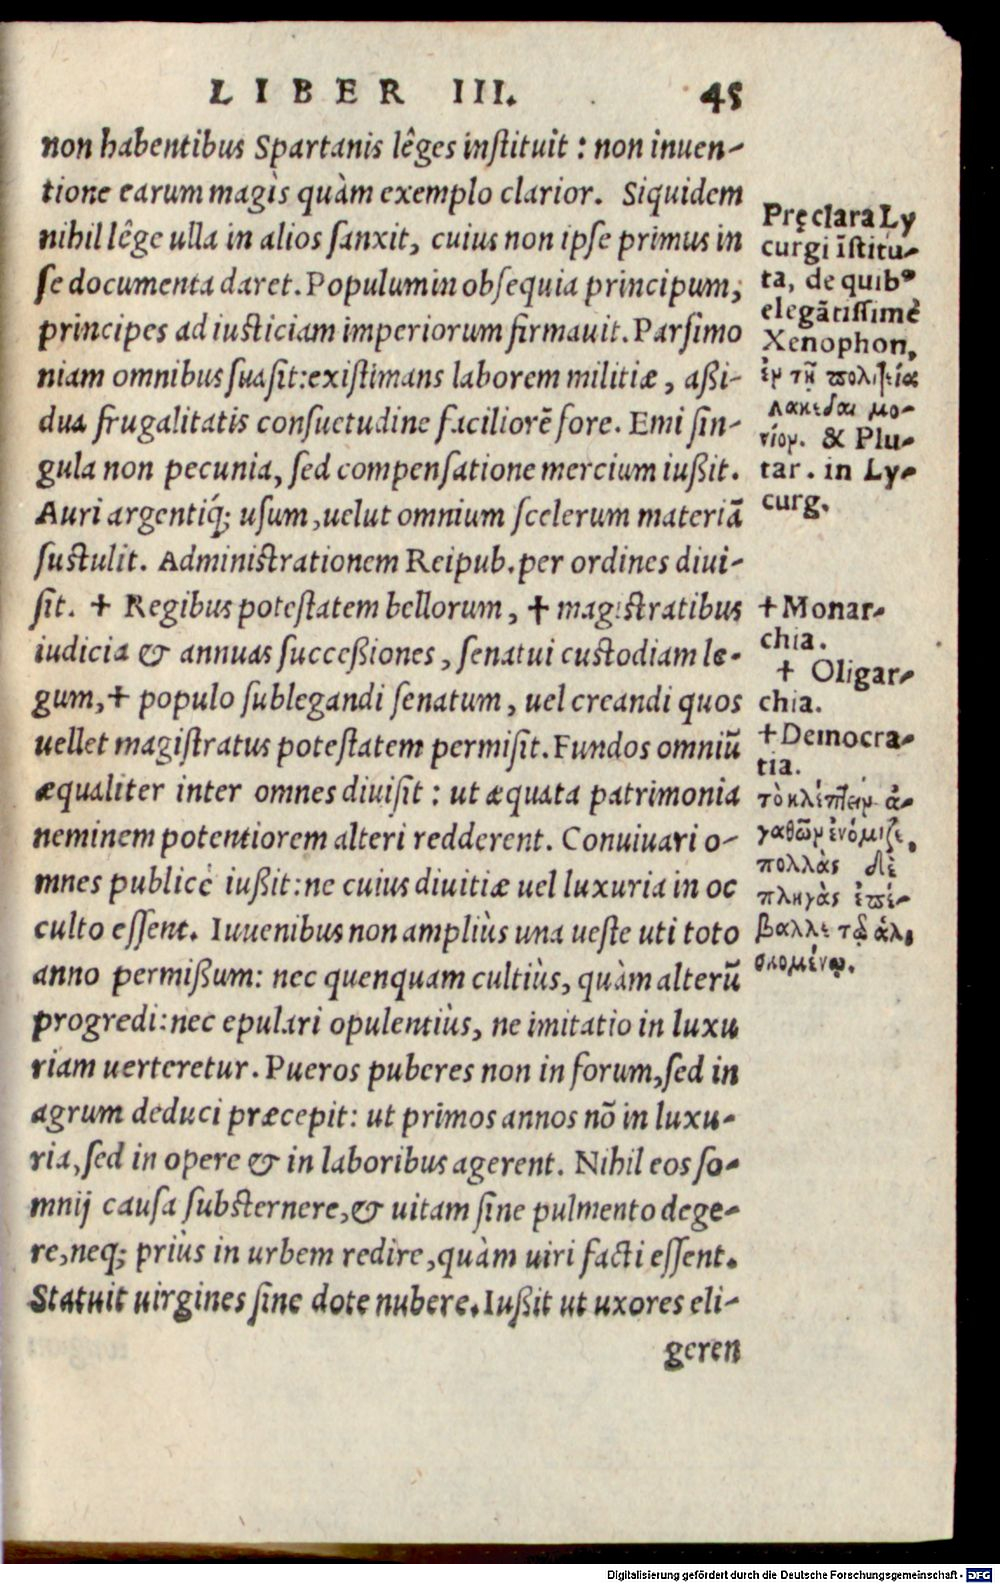 LIBER III. 45
non habentibus Spartanis lêges instituit : non inuen-
tione earum magìs quàm exemplo clarior. Siquidem
nihil lêge ulla in alios sanxit, cuius non ipse primus in
se documenta daret. Populum in obsequia principum,
principes ad iusticiam imperiorum firmauit. Parsimo
niam omnibus suasit: existimans laborem militiæ, aßi-
dua frugalitatis consuetudine faciliorẽ fore. Emi sin-
gula non pecunia, sed compensatione mercium iußit.
Auri argentiq́; usum, uelut omnium scelerum materiã
sustulit. Administrationem Reipub. per ordines diui-
sit. + Regibus potestatem bellorum, + magistratibus
iudicia & annuas succeßiones, senatui custodiam le-
gum, + populo sublegandi senatum, uel creandi quos
uellet magistratus potestatem permisit. Fundos omniũ
æqualiter inter omnes diuisit : ut æquata patrimonia
neminem potentiorem alteri redderent. Conuiuari o-
mnes publicè iußit: ne cuius diuitiæ uel luxuria in oc
culto essent. Iuuenibus non ampliùs una ueste uti toto
anno permißum: nec quenquam cultiùs, quàm alterũ
progredi: nec epulari opulentiùs, ne imitatio in luxu
riam uerteretur. Pueros puberes non in forum, sed in
agrum deduci præcepit: ut primos annos nõ in luxu-
ria, sed in opere & in laboribus agerent. Nihil eos so-
mnij causa substernere, & uitam sine pulmento dege-
re, neq; priùs in urbem redire, quàm uiri facti essent.
Statuit uirgines sine dote nubere. Iußit ut uxores eli-
geren
Pręclara Ly
curgi ĩstitu-
ta, de quibꝰ
elegãtissimè
Xenophon,
ἐν τῇ πολιτείᾳ
λακεδαι μο-
νίων. & Plu-
tar. in Ly-
curg.
+ Monar-
chia.
+ Oligar-
chia.
+ Democra-
tia.
τὸ κλέπτειν ἀ-
γαθῶν ἐνόμιζε,
πολλὰς δὲ
πληγὰς ἐπέ-
βαλλε τῷ ἁλι
σκομένῳ.
Digitalisierung gefördert durch die Deutsche Forschungsgemeinschaft - DFG